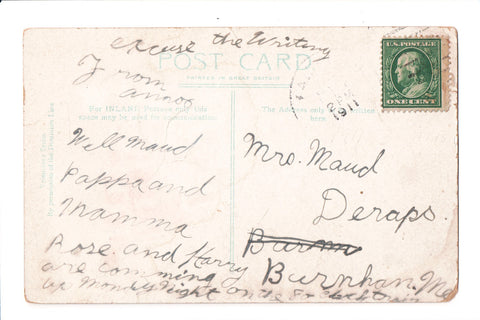 excuse the Writing
POST CARD
PRINTED IN GREAT BRITAIN
From
For INLAND Postage only this
space may be used for communication.
Well Maud
Pappa and
Mamma
Rose and Harry
are comming
up Monday night on the 8 o clock train
The Address only
here
U.S. POSTAGE
ONE CENT
1911
Mrs. Maud
Deraps.
Burnham, Me